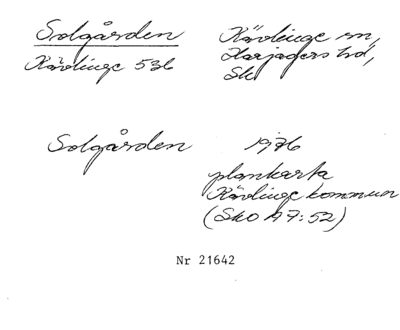 Solgården
Kävlinge sn,
Kävlinge 536
Harjagers hd,
Sk
Solgården
1976
plankarta
Kävlinge kommun
(Sko A7:52)
Nr 21642